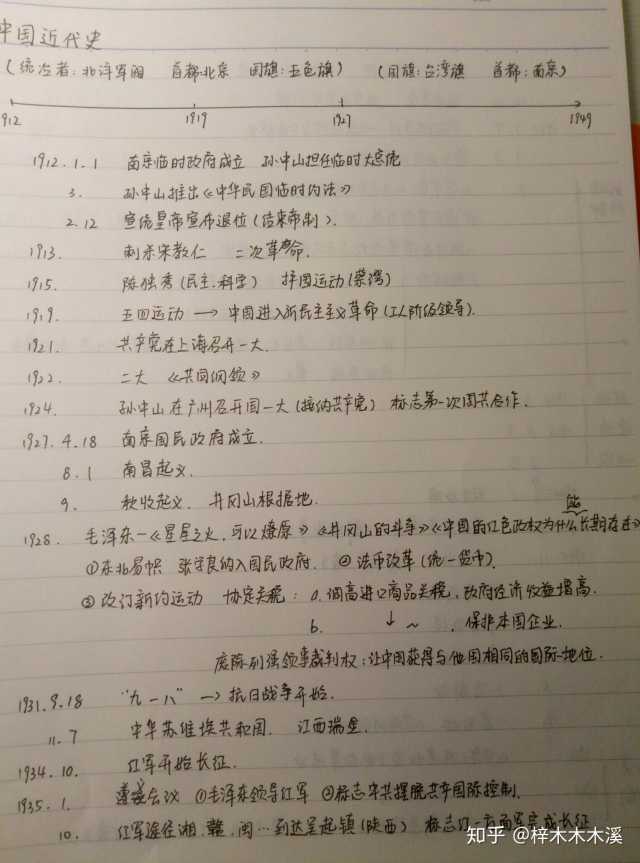 中国近代史
(统治者:北洋军阀 首都:北京 国旗:五色旗) (国旗:台湾旗 首都:南京)
912 1919 1927 1949
1912.1.1 南京临时政府成立 孙中山担任临时大总统
3. 孙中山推出《中华民国临时约法》
2.12 宣统皇帝宣布退位(结束帝制).
1913. 刺杀宋教仁 二次革命.
1915. 陈独秀(民主.科学) 护国运动(蔡锷)
1919. 五四运动 → 中国进入新民主主义革命(工人阶级领导).
1921. 共产党在上海召开一大.
1922. 二大 《共同纲领》
1924. 孙中山在广州召开国一大(接纳共产党) 标志第一次国共合作.
1927.4.18 南京国民政府成立.
8.1 南昌起义.
9. 秋收起义. 井冈山根据地.
1928. 毛泽东-《星星之火,可以燎原》《井冈山的斗争》《中国的红色政权为什么能长期存在》
①东北易帜 张学良纳入国民政府. ②法币改革(统一货币).
③改订新约运动 协定关税: a.调高进口商品关税,政府经济收益增高.
b. ↓ ~ . 保护本国企业.
废除列强领事裁判权:让中国获得与他国相同的国际地位.
1931.9.18 “九一八” → 抗日战争开始.
11.7 中华苏维埃共和国. 江西瑞金.
1934.10. 红军开始长征.
1935.1. 遵义会议 ①毛泽东领导红军 ②标志中共摆脱共产国际控制.
10. 红军途径湘、赣、闽…到达吴起镇(陕西) 标志红一方面军完成长征
知乎 @梓木木木溪